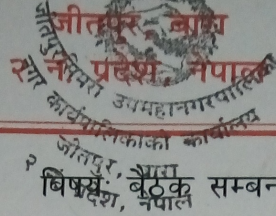 जीतपुर, बारा
२ नं प्रदेश, नेपाल
जीतपुरसिमरा उपमहानगरपालिका
नगर कार्यपालिकाको कार्यालय
जीतपुर, बारा
२ प्रदेश, नेपाल
बिषय: बैठक सम्बन